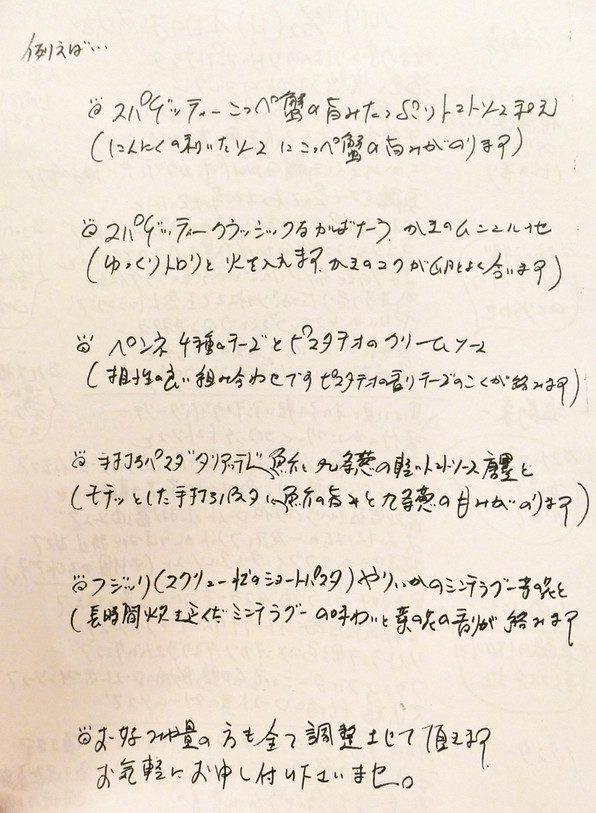 例えば…
スパゲッティーこっペ蟹の旨みたっぷりトマトソース和え
(にんにくの利いたソースにこっペ蟹の旨みがのります)
スパゲッティークラッシックなかるぼなーら
(ゆっくりトロリと火を入れます、 のコクが よく合います)
ペンネ 4種のチーズとピスタチオのクリームソース
(相性の良い組み合わせです ピスタチオの香りチーズのこくが絡みます)
手打ちパスタ タリアッテレ 魚介と九条葱の軽いトマトソース
(モチッとした手打ちパスタに魚介の旨みと九条葱の甘みがのります)
フジッリ(スクリュー状のショートパスタ)やりいかの ラグー 菜の花と
(長時間火 ラグーの味わいと菜の花の香りが絡みます
お好みや量の方も全て調整させて頂きます
お気軽にお申し付け下さいませ。